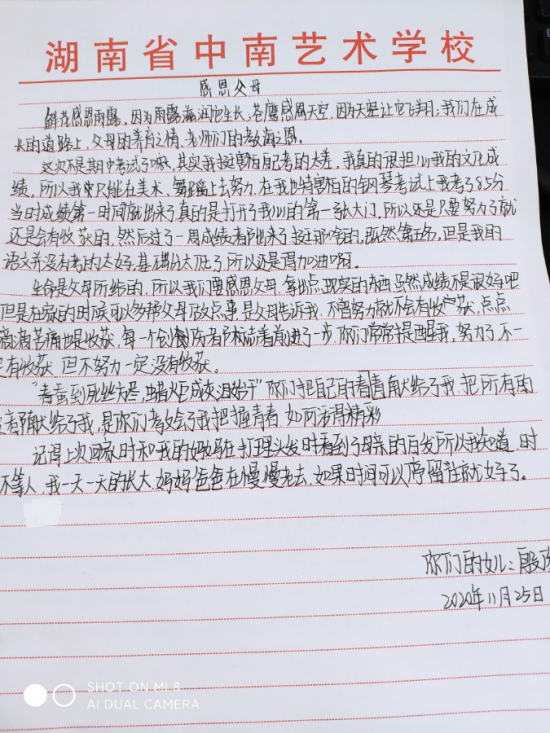 湖南省中南艺术学校
感恩父母
鲜花感恩雨露,因为雨露滋润它生长,苍鹰感恩天空,因为天空让它飞翔,我们在成
长的道路上,父母的养育之情,老师们的教诲之恩。
这次不是期中考试了嘛,其实我挺害怕自己考的太差,我真的很担心我的文化成
绩,所以我只能在美术,舞蹈上去努力,在我比特害怕的钢琴考试上我考了85分
当时成绩第一时间就出来了真的是打开了我心的第一张大门,所以还是只要努力了就
还是会有收获的,然后过了一周成绩都出来了挺那啥的,既然第五名,但是我的
语文并没有考的太好,基础分太低了所以还是得加油啊。
生命是父母所给的,所以我们要感恩父母,拿出点现实的东西,虽然成绩不是很好吧
但是在家的时候可以多帮父母做点事,是父母告诉我,不曾努力就不会有收获,点点
滴滴苦痛也是收获,每一个创伤都标志着前进了一步,你们常常提醒我,努力了不一
定有收获,但不努力一定没有收获。
“春蚕到死丝方尽,蜡炬成灰泪始干”你们把自己的青春献给了我,把所有的
献给了我,是你们教会了我把握青春,如何活得精彩
记得上次回家时和我的妈妈在打理头发时看到了母亲的白发所以我知道,时
不等人,我一天一天的长大,妈妈爸爸在慢慢老去,如果时间可以停留住就好了。
你们的女儿:殷
2020年11月25日
SHOT ON MI 8
AI DUAL CAMERA